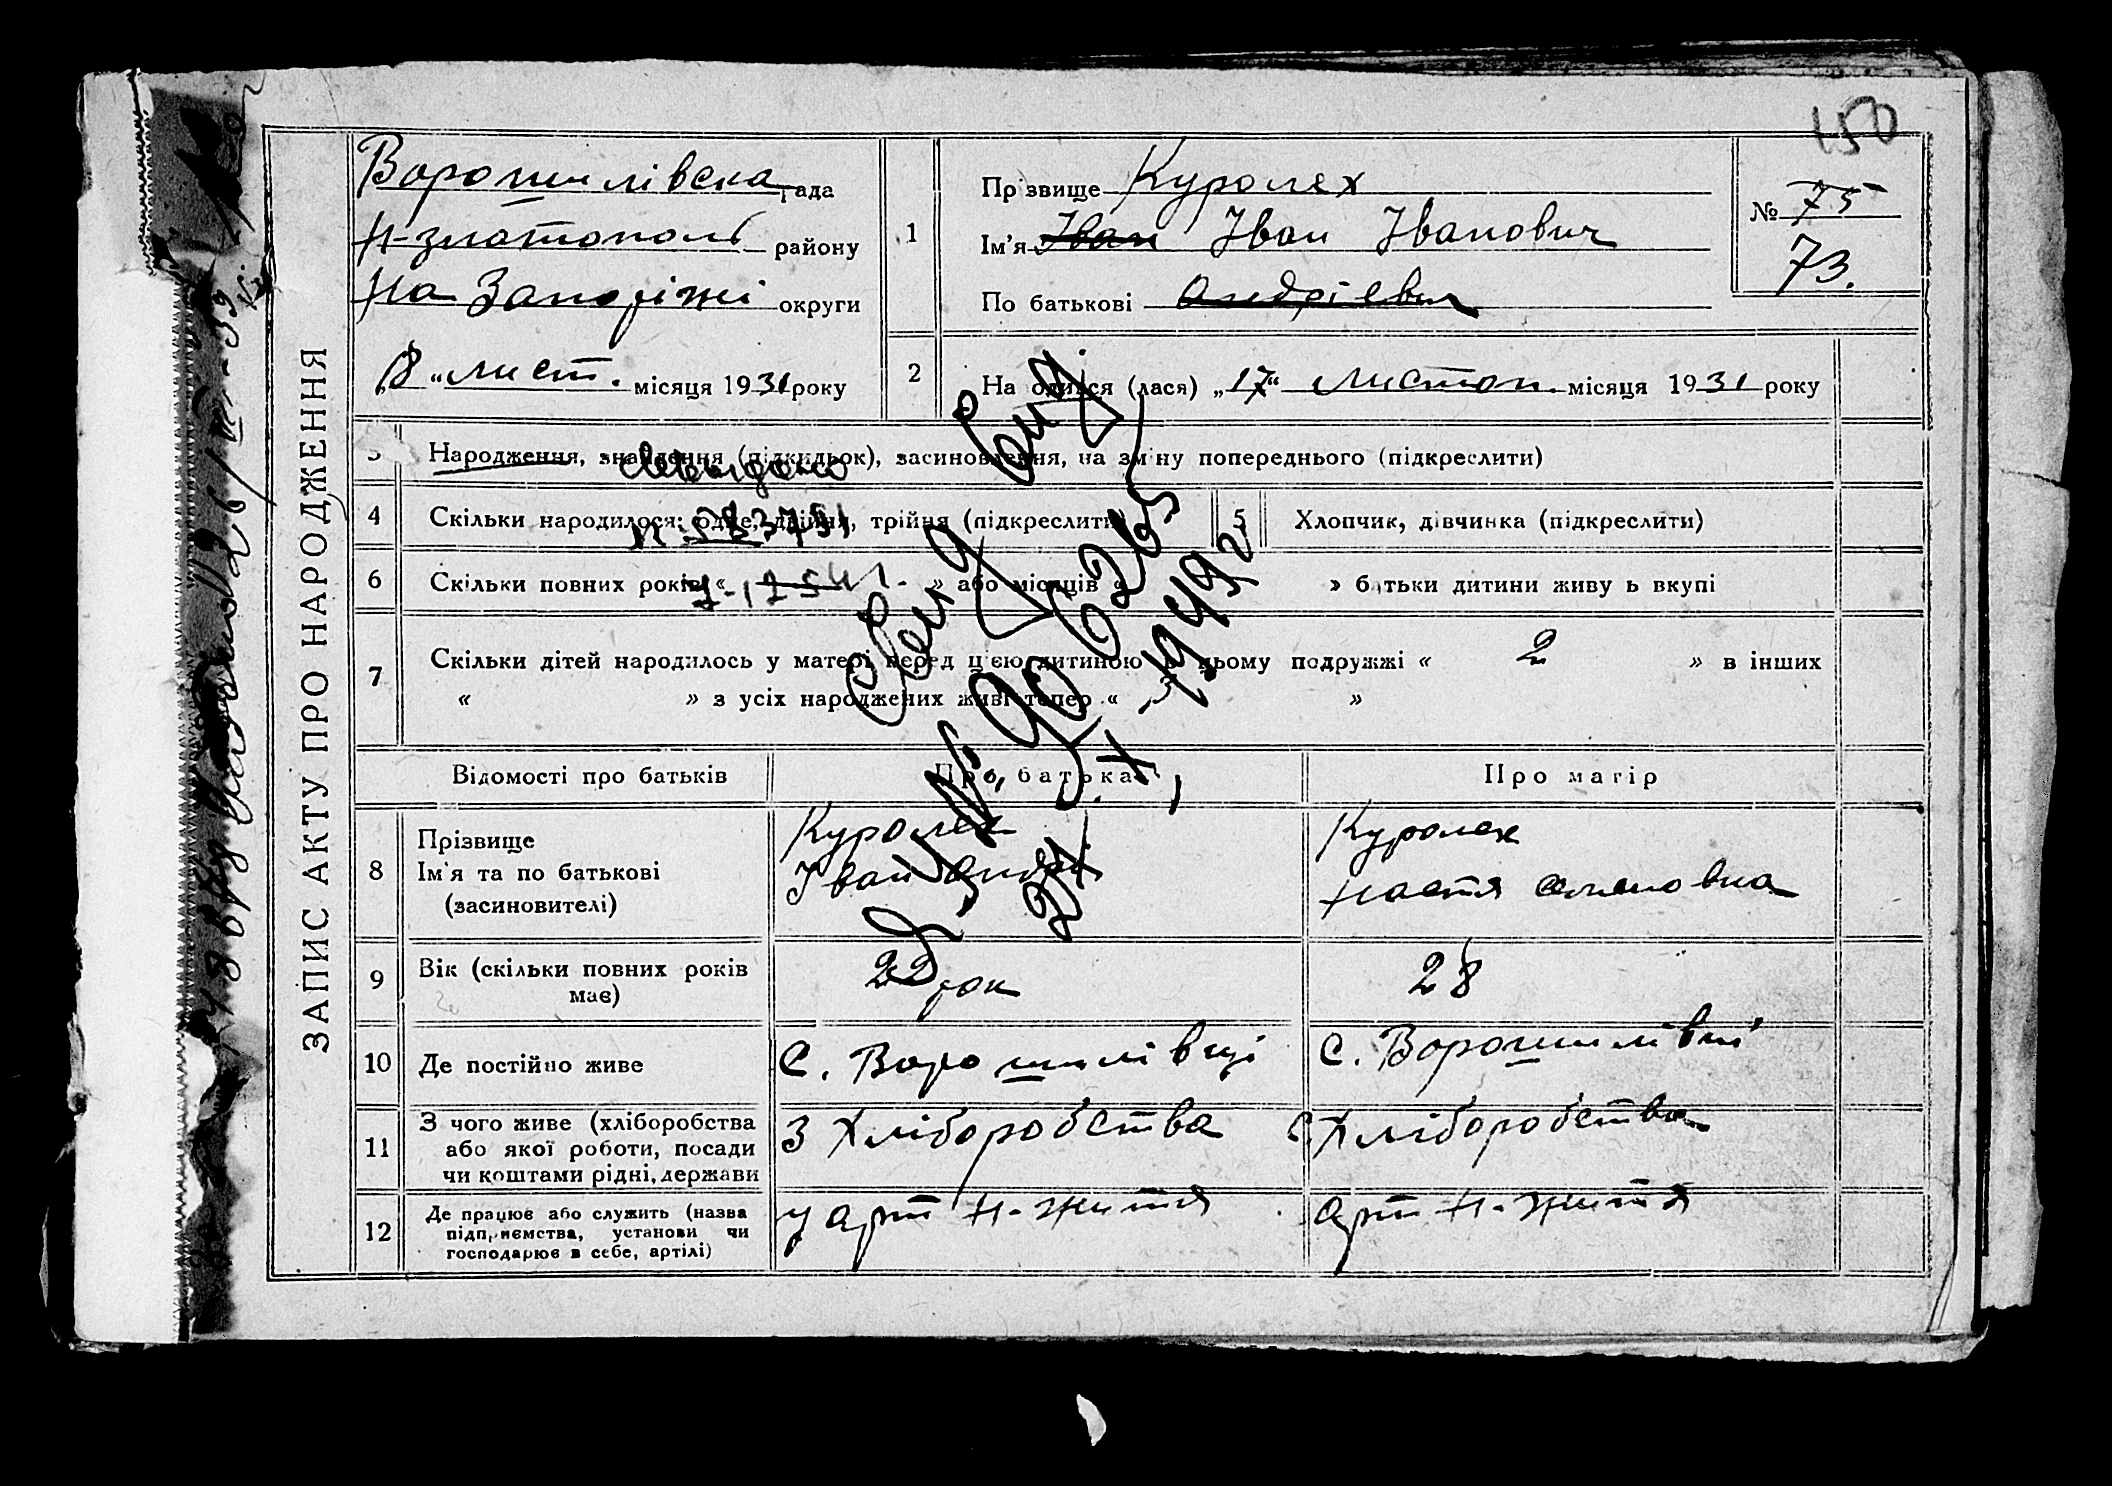 150
ЗАПИС АКТУ ПРО НАРОДЖЕННЯ
Ворошилівска рада
Н-златополь району
На Запоріжі округи
"18" лист. місяця 1931 року
1
Прізвище Куролех
Ім'я Іван Іван Іванович
По батькові Андрієвич
№ 75
73.
2
На одився (лася) „17" листоп. місяця 1931 року
3
Народження, знайдення (підкидьок), засиновлення, на зміну попереднього (підкреслити)
4
Скільки народилося: одне, двійня, трійня (підкреслити)
5
Хлопчик, дівчинка (підкреслити)
6
Скільки повних років « » або місяців « » батьки дитини живу ь вкупі
7
Скільки дітей народилось у матері перед цією дитиною в цьому подружжі « 2 » в інших
« » з усіх народжених живі тепер « 3 »
Свид
№ 906265
X 1949
Відомості про батьків
Про батька
Про матір
8
Прізвище
Ім'я та по батькові
(засиновителі)
Куролех
Іван Андрі
Куролех
Настя семеновна
9
Вік (скільки повних років
має)
22 рок
28
10
Де постійно живе
С. Ворошилівці
С. Ворошилівці
11
З чого живе (хліборобства
або якої роботи, посади
чи коштами рідні, держави
З Хліборобства
З Хліборобства
12
Де працює або служить (назва
підприємства, установи чи
господарює в себе, артілі)
у арт Н-життя
арт Н-життя